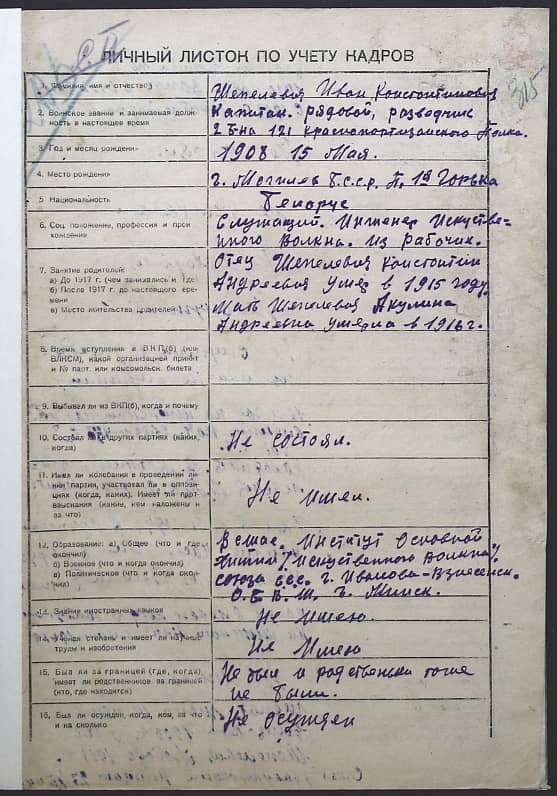 С.П.
315
ЛИЧНЫЙ ЛИСТОК ПО УЧЕТУ КАДРОВ
1. Фамилия, имя и отчество
Шепелевич Иван Константинович
2. Воинское звание и занимаемая долж-
ность в настоящее время
Капитан. рядовой, разведчик
2 б-на 121 краснопартизанского Полка.
3. Год и месяц рождения
1908 15 Мая.
4. Место рождения
г. Могилев Б.С.С.р. П. 1я Горька
5 Национальность
Беларус
6. Соц. положение, профессия и прои
хождение
Служащий. Инженер Искустве-
нного Волкна. из рабочих.
7. Занятие родителей:
а) До 1917 г. (чем занимались и где)
б) После 1917 г. до настоящего вре-
мени
в) Место жительства родителей
Отец Шепелевич Константин
Андреевич умер в 1915 году.
Мать Шепелевич Акулина
Андреевна умерла в 1916 г.
8. Время вступления в ВКП(б) (или
ВЛКСМ), какой организацией принят
и № парт. или комсомольск. билета
9. Выбывал ли из ВКП(б), когда и почему
10. Состоял ли в других партиях (каких,
когда)
Не состоял.
11. Имел ли колебания в проведении ли-
нии партии, участвовал ли в оппози-
циях (когда, каких). Имеет ли парт-
взыскания (какие, кем наложены и
за что)
Не имел.
12. Образование: а) Общее (что и где
окончил)
б) Военное (что и когда окончил)
в) Политическое (что и когда окон-
чил)
Высшее. Институт Основной
Химии /Искуственного Волкна/.
союза ссс. г. Иванова-Взнесенск.
О.Б.В.Ш. г. Минск.
13. Знание иностранных языков
Не имею.
14. Ученая степень и имеет ли научные
труды и изобретения
Не Имею
15. Был ли за границей (где, когда),
имеет ли родственников за границей
(кто, где находится)
Не был и родственики тоже
не были.
16. Был ли осужден, когда, кем, за что
и на сколько
Не осужден